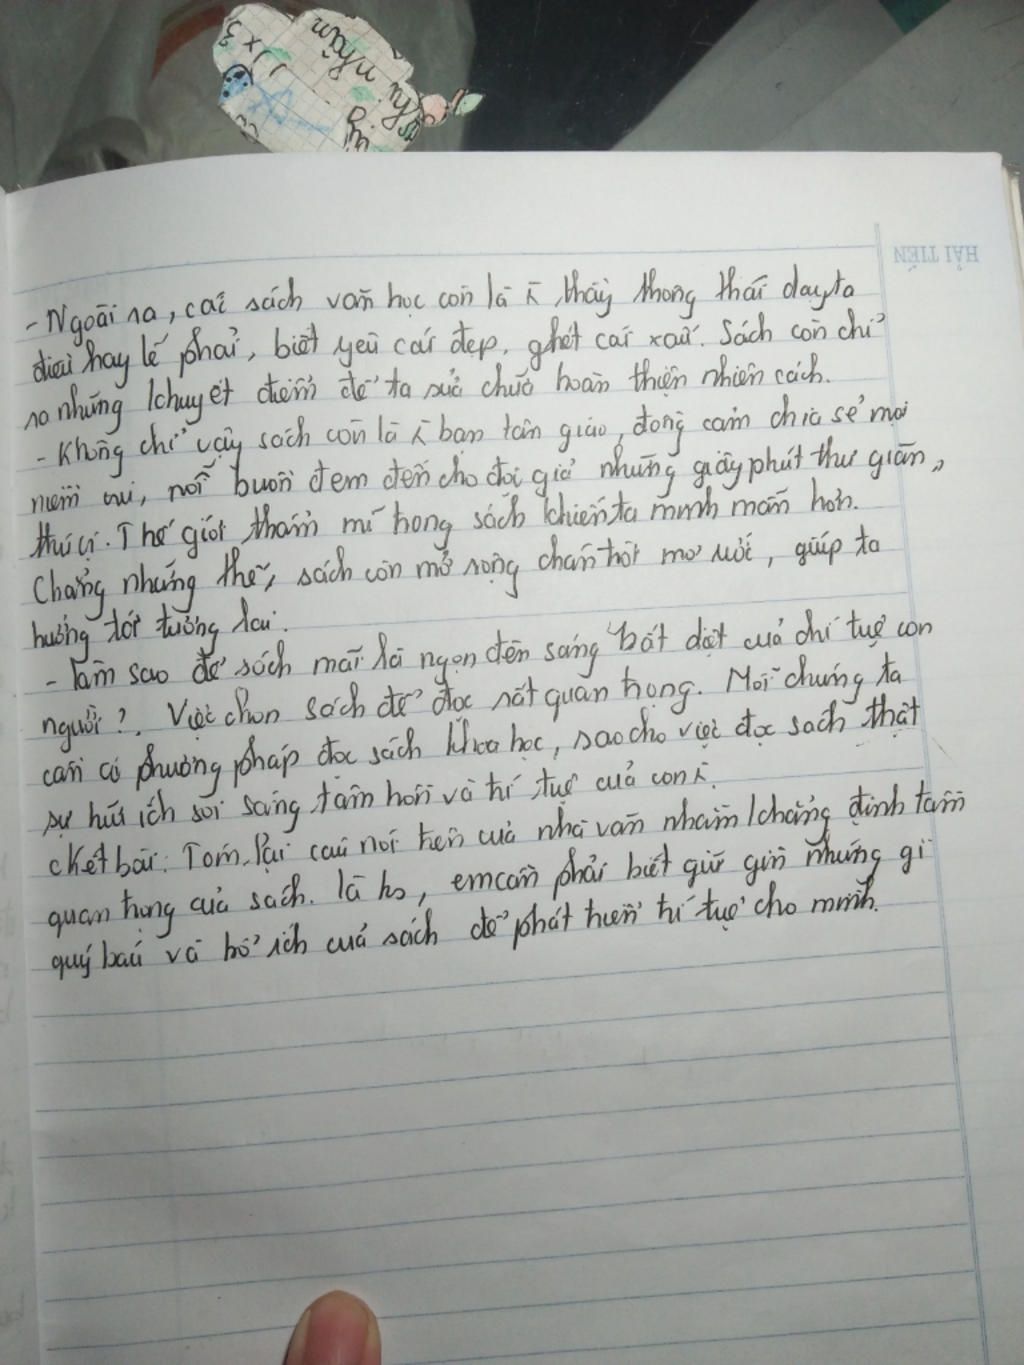 x 3
nhãn
HẢI TIẾN
- Ngoài ra, cái sách văn học còn là thầy thông thái dạy ta
điều hay lẽ phải, biết yêu cái đẹp, ghét cái xấu. Sách còn chỉ
ra những khuyết điểm để ta sửa chữa hoàn thiện nhiên cách.
- Không chỉ vậy sách còn là bạn tân giao, đồng cảm chia sẻ mọi
niềm vui, nỗi buồn đem đến cho đọi giả những giây phút thư giãn,
thú vị. Thế giới thẩm mĩ trong sách khiến ta minh mẫn hơn.
Chẳng những thế, sách còn mở rộng chân trời mơ ước, giúp ta
hướng tới tương lai.
- Làm sao để sách mãi là ngọn đèn sáng bất diệt của chí tuệ con
người?. Việc chọn sách để đọc rất quan trọng. Mỗi chúng ta
cần có phương pháp đọc sách khoa học, sao cho việc đọc sách thật
sự hữu ích soi sáng tâm hồn và trí tuệ của con
Kết bài: Tóm lại câu nói trên của nhà văn nhằm khẳng định tầm
quan trọng của sách. là hs, em cần phải biết giữ gìn những gì
quý báu và bổ ích của sách để phát triển trí tuệ cho mình.